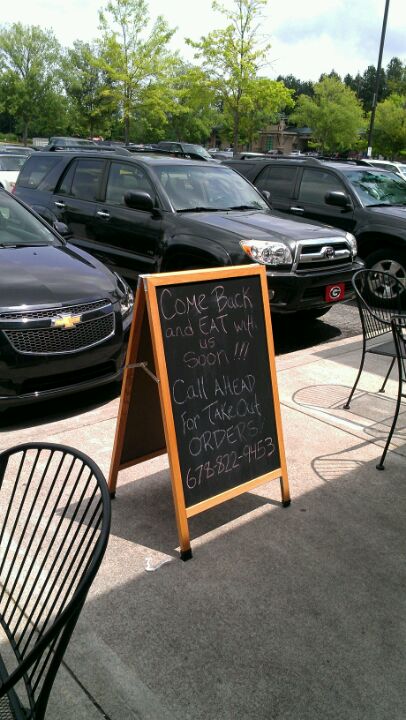 Come Back
and EAT with
us
Soon !!!
Call AHEAD
For Take Out
ORDERS!
678-822-9453
G